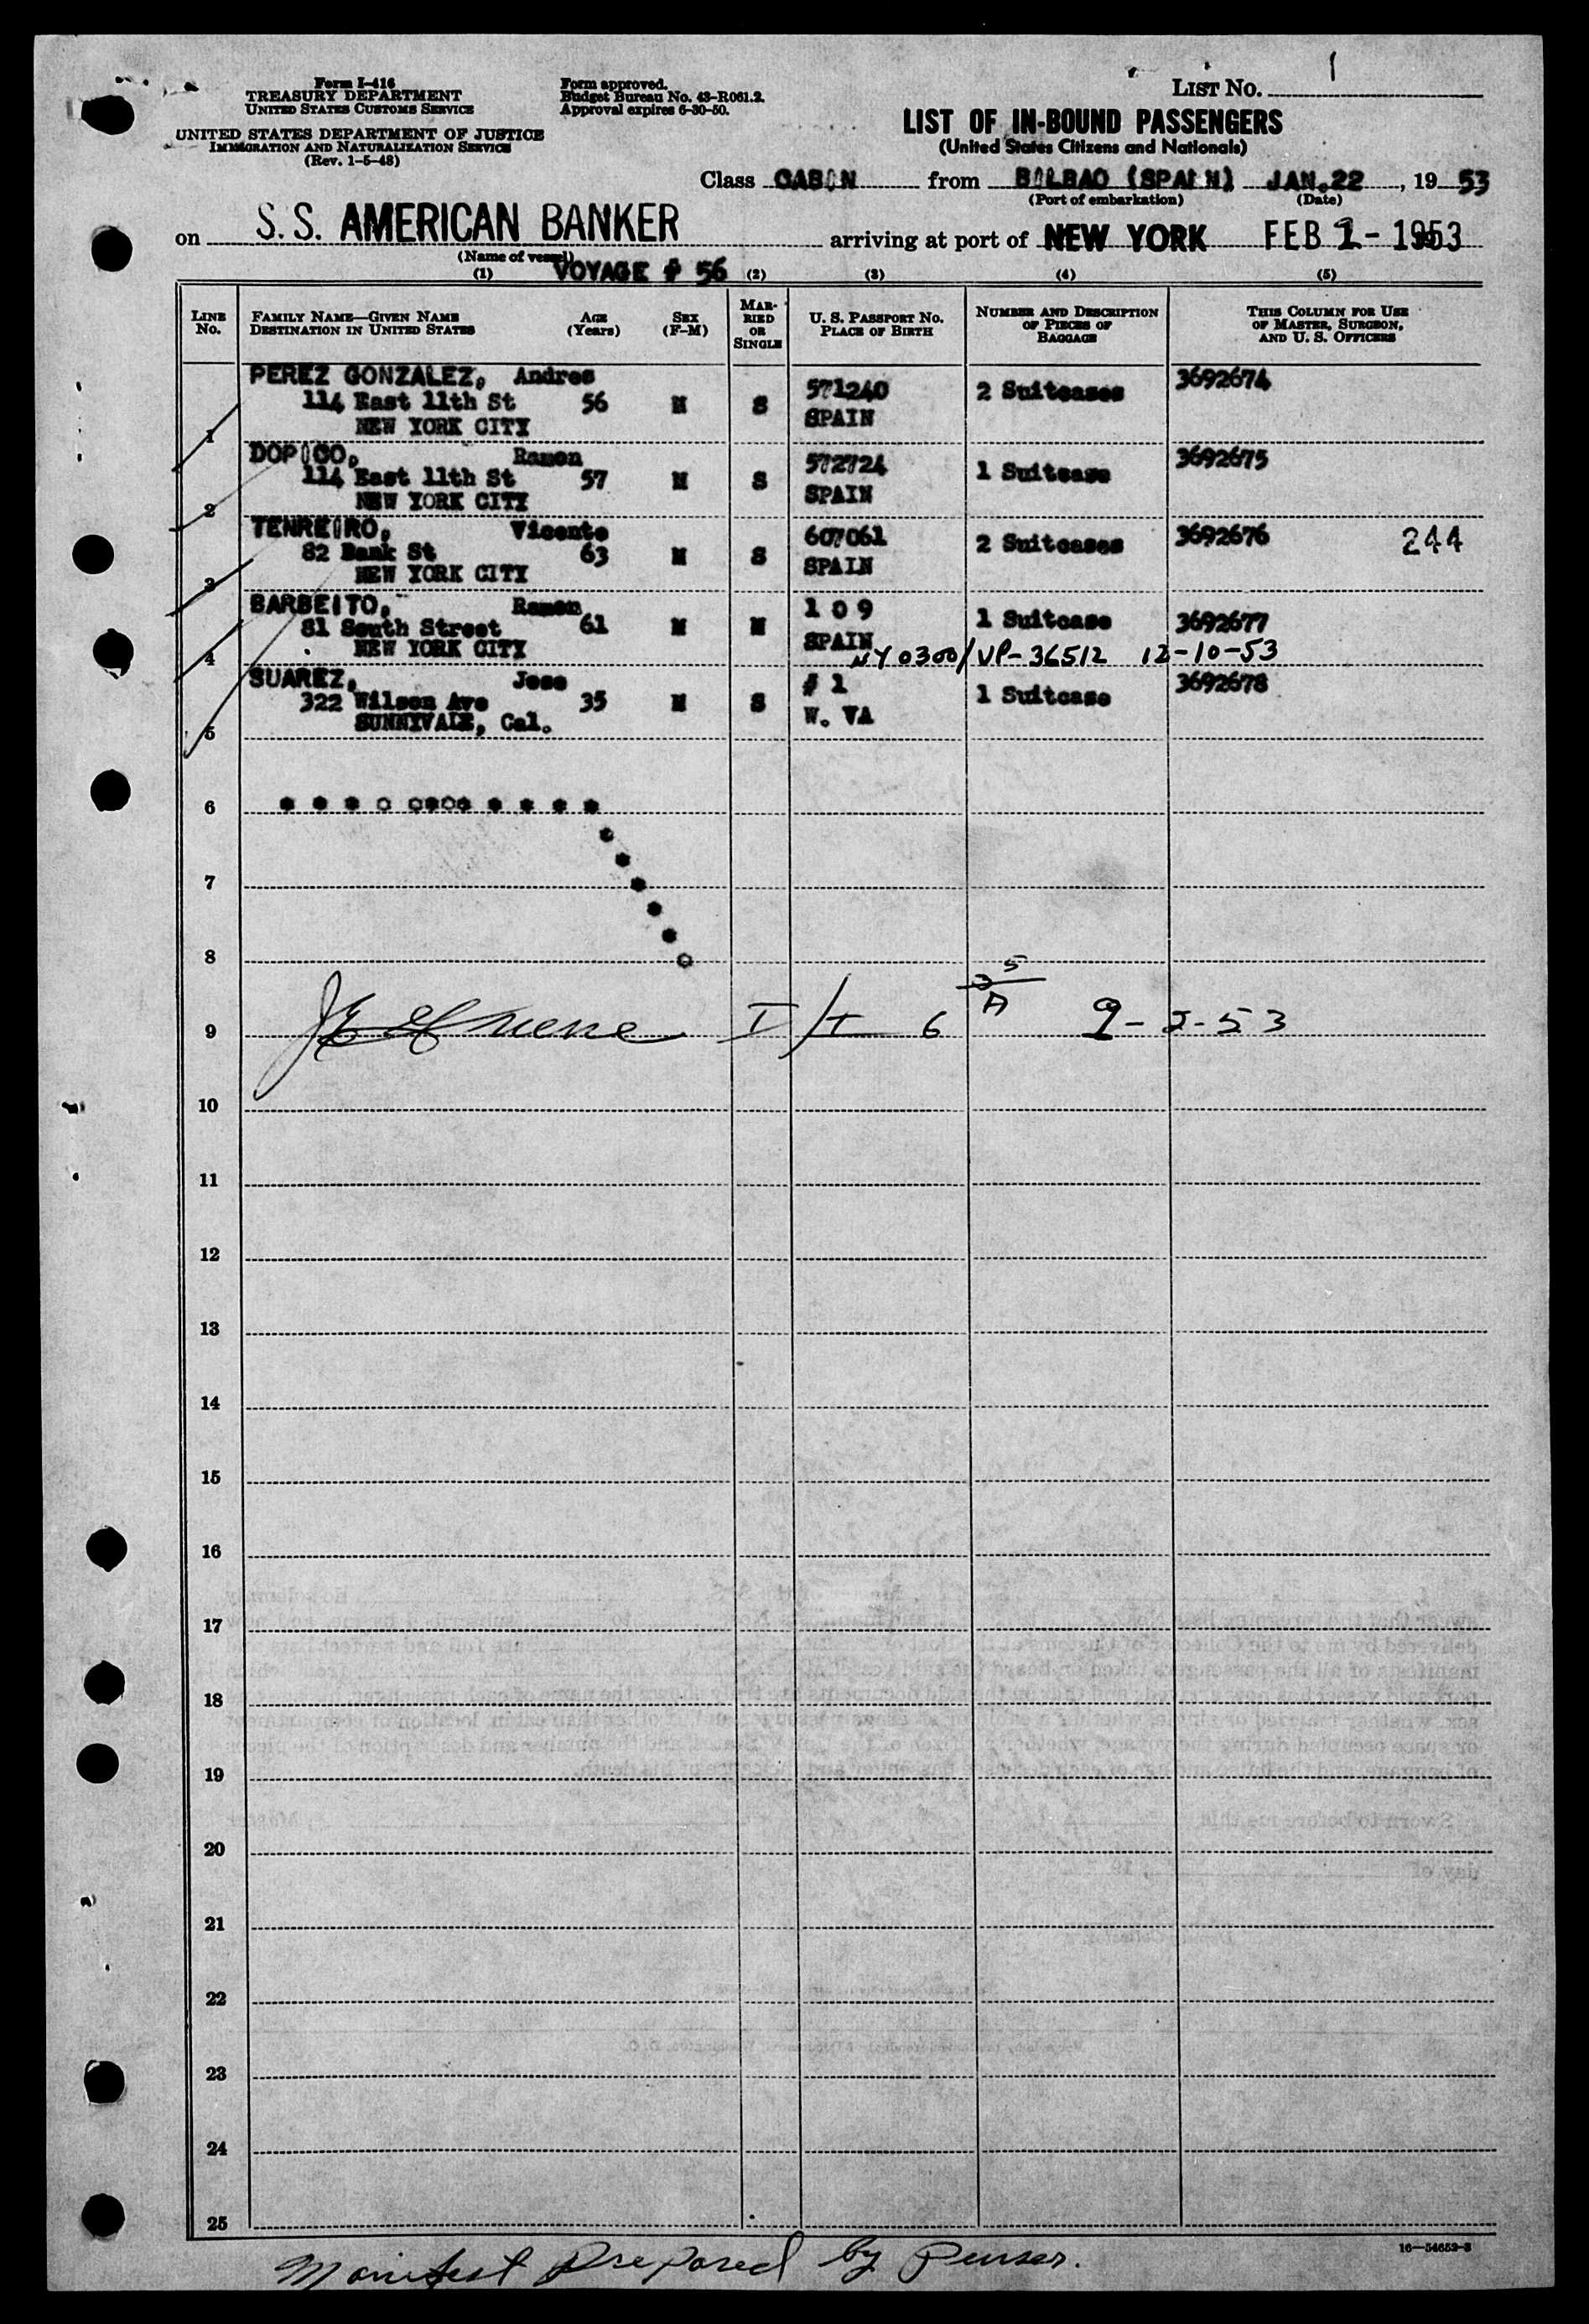 Form I-416
TREASURY DEPARTMENT
UNITED STATES CUSTOMS SERVICE
UNITED STATES DEPARTMENT OF JUSTICE
IMMIGRATION AND NATURALIZATION SERVICE
(Rev. 1-5-48)
Form approved.
Budget Bureau No. 43-R061.2.
Approval expires 6-30-50.
LIST NO. 1
LIST OF IN-BOUND PASSENGERS
(United States Citizens and Nationals)
Class CABIN from BILBAO (SPAIN) JAN.22, 1953
(Port of embarkation) (Date)
on S.S. AMERICAN BANKER arriving at port of NEW YORK FEB 1953
(Name of vessel)
VOYAGE # 56
(1) (2) (3) (4) (5)
LINE NO.
FAMILY NAME—GIVEN NAME
DESTINATION IN UNITED STATES
AGE (Years)
SEX (F-M)
MARRIED OR SINGLE
U. S. PASSPORT NO.
PLACE OF BIRTH
NUMBER AND DESCRIPTION OF PIECES OF BAGGAGE
THIS COLUMN FOR USE OF MASTER, SURGEON, AND U. S. OFFICERS
PEREZ GONZALEZ, Andres 571240 2 Suitcases 3692674
114 East 11th St 56 M S SPAIN
1 NEW YORK CITY
DOPICO, Ramon 572724 1 Suitcase 3692675
114 East 11th St 57 M S SPAIN
2 NEW YORK CITY
TENREIRO, Vicente 607061 2 Suitcases 3692676 244
82 Bank St 63 M S SPAIN
3 NEW YORK CITY
BARBEITO, Ramon 1 0 9 1 Suitcase 3692677
81 South Street 61 M M SPAIN
4 NEW YORK CITY NY 0300/VP-36512 12-10-53
SUAREZ, Jose # 1 1 Suitcase 3692678
322 Wilson Ave 35 M S W. VA
5 SUNNYVALE, Cal.
6
7
8
5
A
9 I/I 6 2-53
10
11
12
13
14
15
16
17
18
19
20
21
22
23
24
25
16—54652-3
Manifest Prepared by Purser.